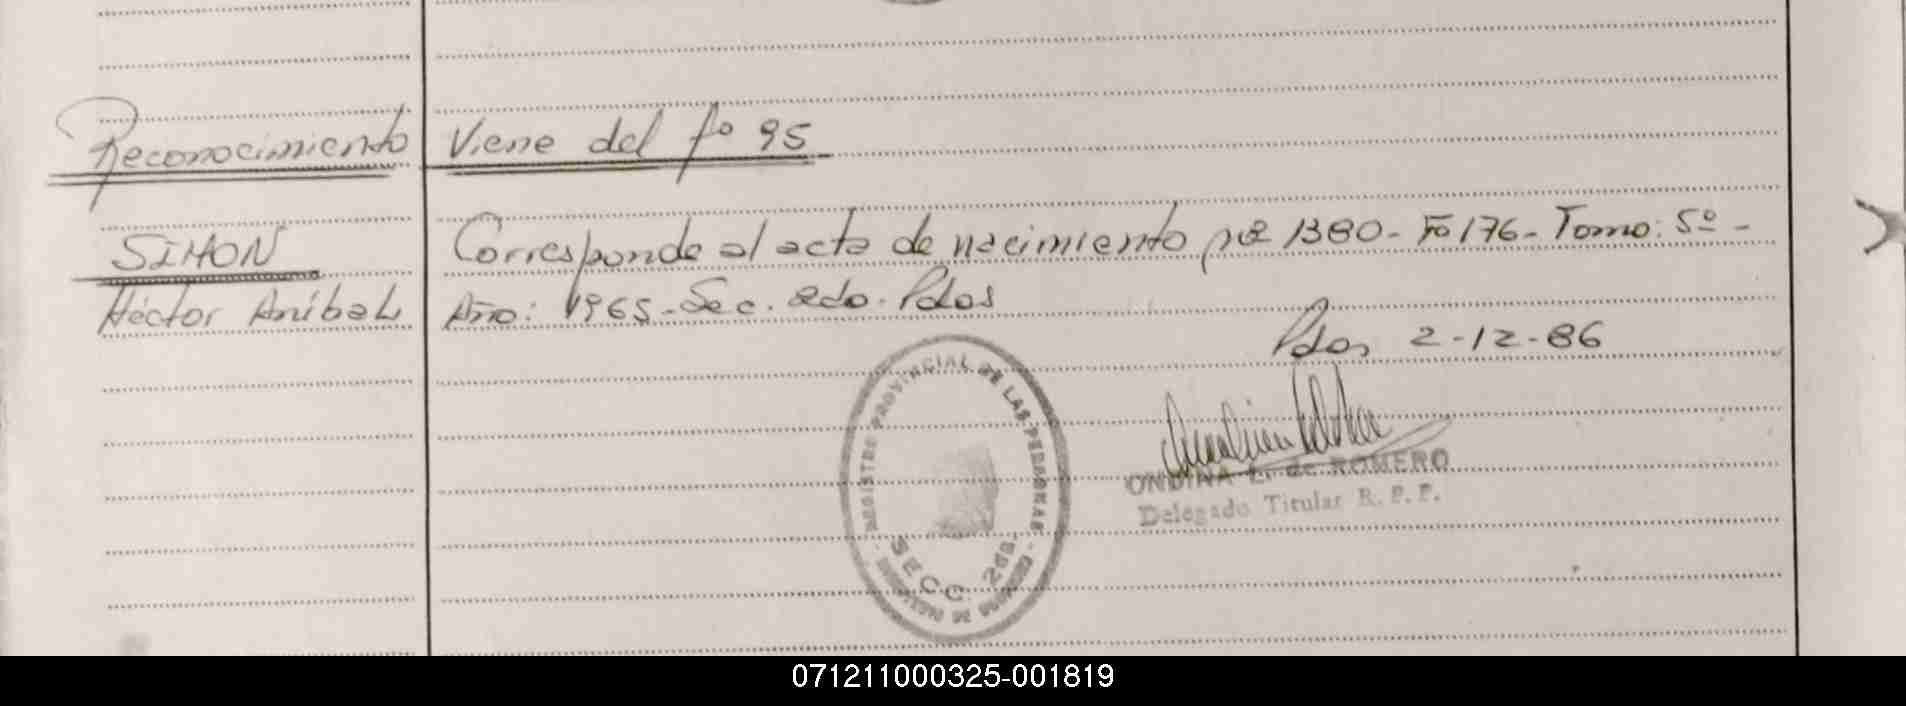 Reconocimiento Viene del fº 95
SIMON Corresponde al acta de nacimiento nº 1380 - Fº 176 - Tomo: 5º -
Héctor Aníbal Año: 1965 - Sec. 2do. Pdos
Pdas 2-12-86
REGISTRO PROVINCIAL DE LAS PERSONAS
SECC. 2da
ONDINA L. de ROMERO
Delegado Titular R. P. P.
071211000325-001819